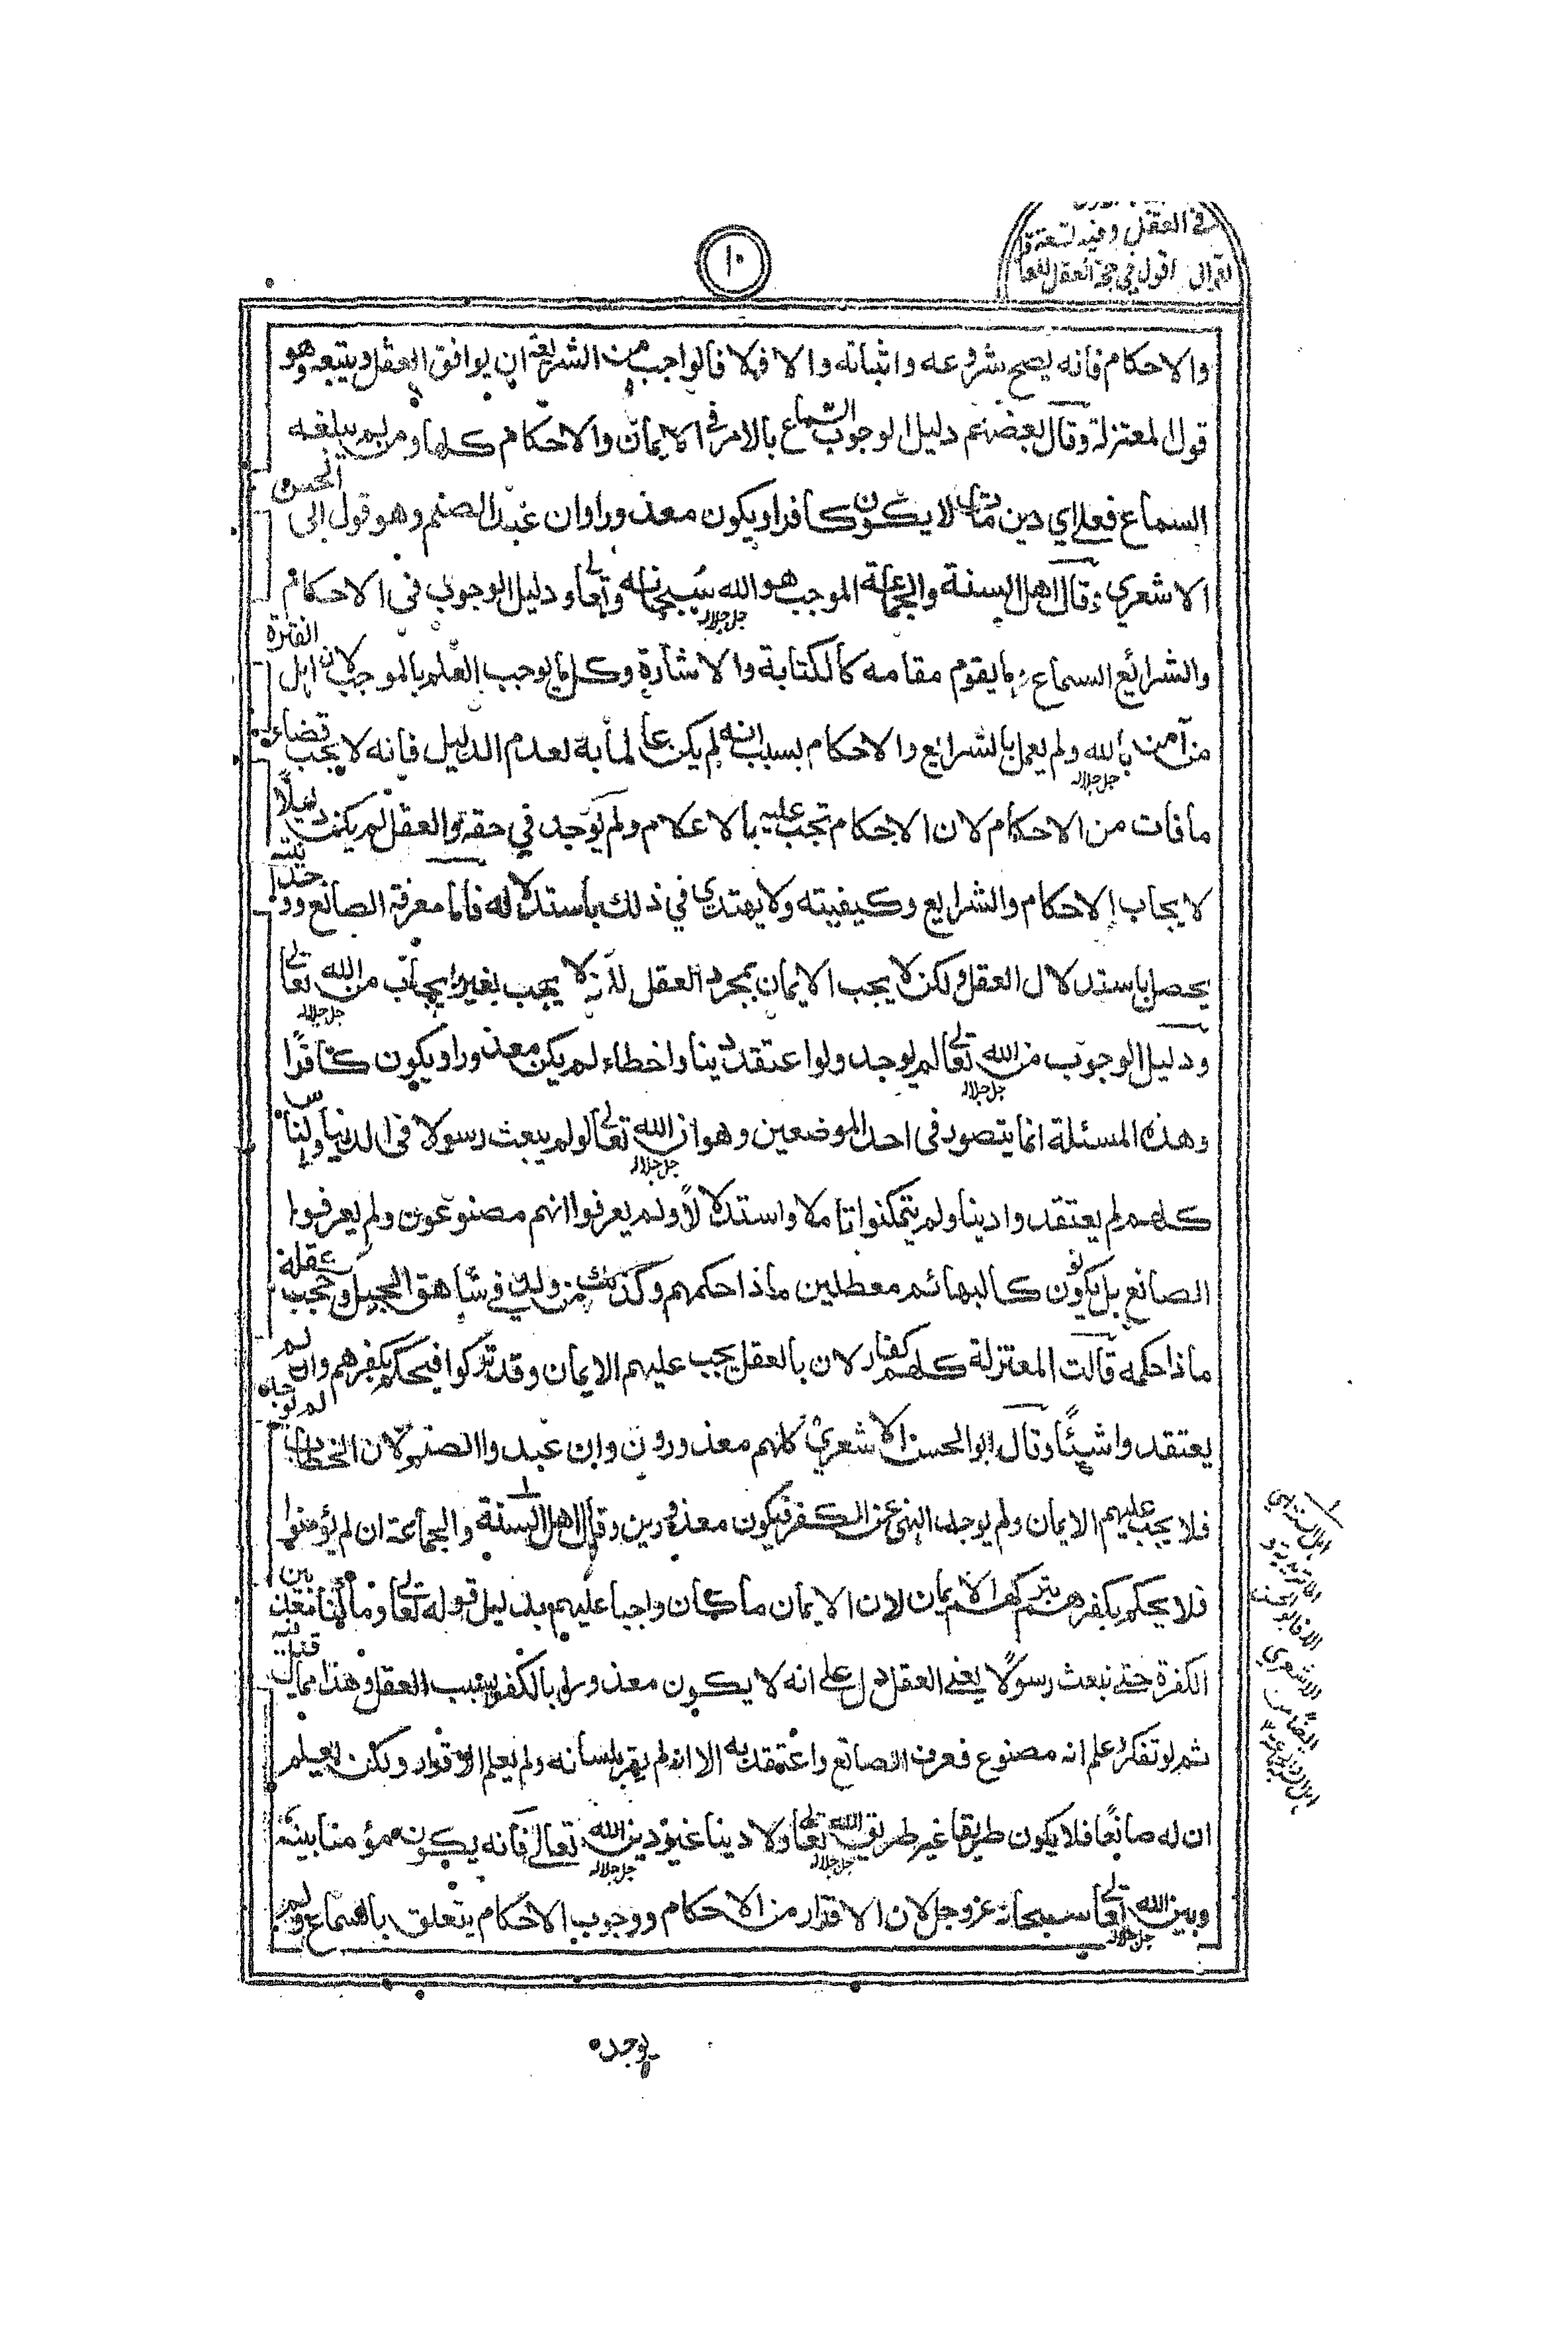 في العقل وفيه تسعة
اقوال اقول في حجة العقل
١٠
والاحكام فانه يصح شروعه واثباته والا فلا فالواجب من الشريعة ان يوافق العقل ويتبعه وهو
قول المعتزلة وقال بعضهم دليل الوجوب السماع بالامر في الايمان والاحكام كلها ومن لم يبلغه
السماع فعلى اي دين مات لا يكون كافرا ويكون معذورا وان عبد الصنم وهو قول ابى الحسن
الاشعري وقال اهل السنة والجماعة الموجب هو الله سبحانه وتعالى جل جلاله ودليل الوجوب في الاحكام
والشرائع السماع وما يقوم مقامه كالكتابة والاشارة وكل ما يوجب العلم بالموجب لان اهل الفترة
من آمن بالله جل جلاله ولم يعمل بالشرايع والاحكام بسبب انه لم يكن عالما به لعدم الدليل فانه لا يجب قضاء
ما فات من الاحكام لان الاحكام تجب عليه بالاعلام ولم يوجد في حقه والعقل لم يكن دليلًا
لايجاب الاحكام والشرايع وكيفيته ولا يهتدي في ذلك باستدلاله فاما معرفة الصانع ووحدانيته
يحصل باستدلال العقل ولكن لا يجب الايمان بمجرد العقل لانه لا يجب بغير ايجاب من الله تعالى جل جلاله
ودليل الوجوب من الله تعالى جل جلاله لم يوجد ولو اعتقد دينا واخطاء لم يكن معذورا ويكون كافرًا
وهذه المسئلة انما يتصور في احد الموضعين وهو ان الله تعالى جل جلاله لو لم يبعث رسولا في الدنيا والناس
كلهم لم يعتقدوا دينا ولم يتمكنوا تاملا واستدلالًا ولم يعرفوا انهم مصنوعون ولم يعرفوا
الصانع بل يكونون كالبهائم معطلين ماذا حكمهم وكذلك من ولد في شاهق الجبل وحجب عقله
ماذا حكمه قالت المعتزلة كلهم كفار لان بالعقل يجب عليهم الايمان وقد تركوا فيحكم بكفرهم وان لم
يعتقدوا شيئًا وقال ابو الحسن الاشعري كلهم معذورون وان عبدوا الصنم لان الخطاب لم يوجد
فلا يجب عليهم الايمان ولم يوجد النهي عن الكفر فيكون معذورين وقال اهل السنة والجماعة ان لم يؤمنوا
فلا يحكم بكفرهم بتركهم الايمان لان الايمان ما كان واجبا عليهم بدليل قوله تعالى وما كنا معذبين
الكفرة حتى نبعث رسولًا يعني العقل دل على انه لا يكون معذورا بالكفر بسبب العقل وهذا مما
ثم لو تفكر وعلم انه مصنوع فعرف الصانع واعتقد به الا انه لم يقر بلسانه ولم يعلم الاقرار ولكن يعلم
ان له صانعًا فلا يكون طريقا غير طريق الله تعالى جل جلاله ولا دينا غير دين الله تعالى جل جلاله فانه يكون مؤمنا بينه
وبين الله تعالى جل جلاله سبحانه عز وجل لان الاقرار من الاحكام ووجوب الاحكام يتعلق بالسماع ولم
يوجد